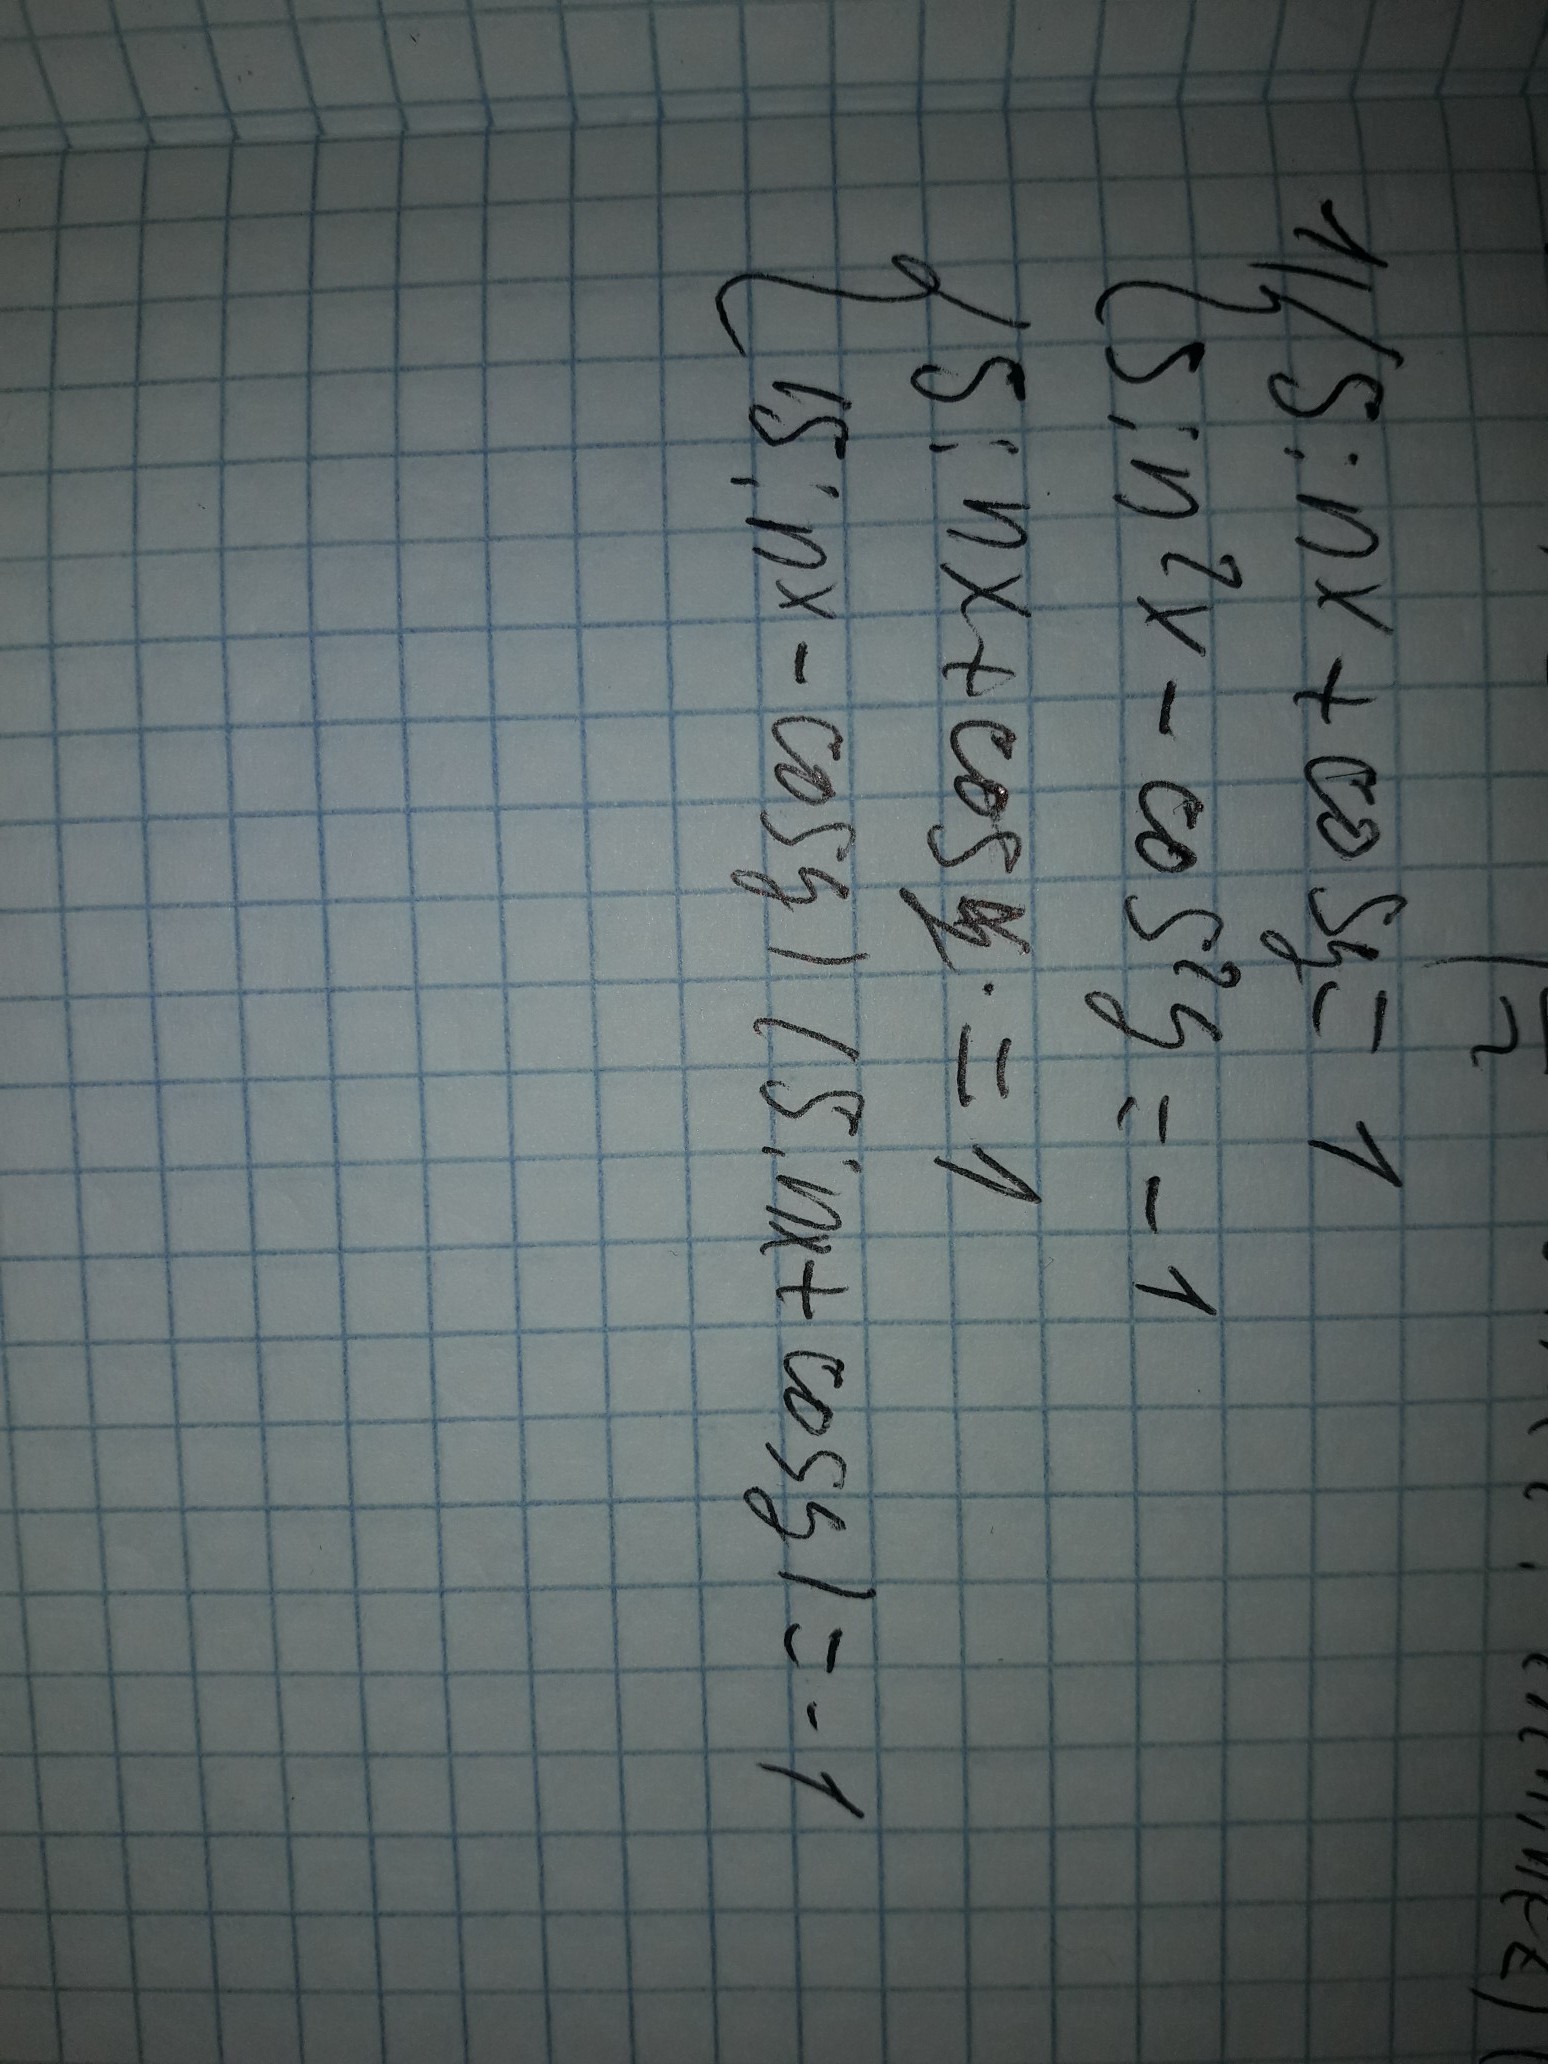 1) { sinx + cosy = 1
{ sin²x - cos²y = -1
{ sinx + cosy = 1
{ (sinx - cosy) (sinx + cosy) = -1